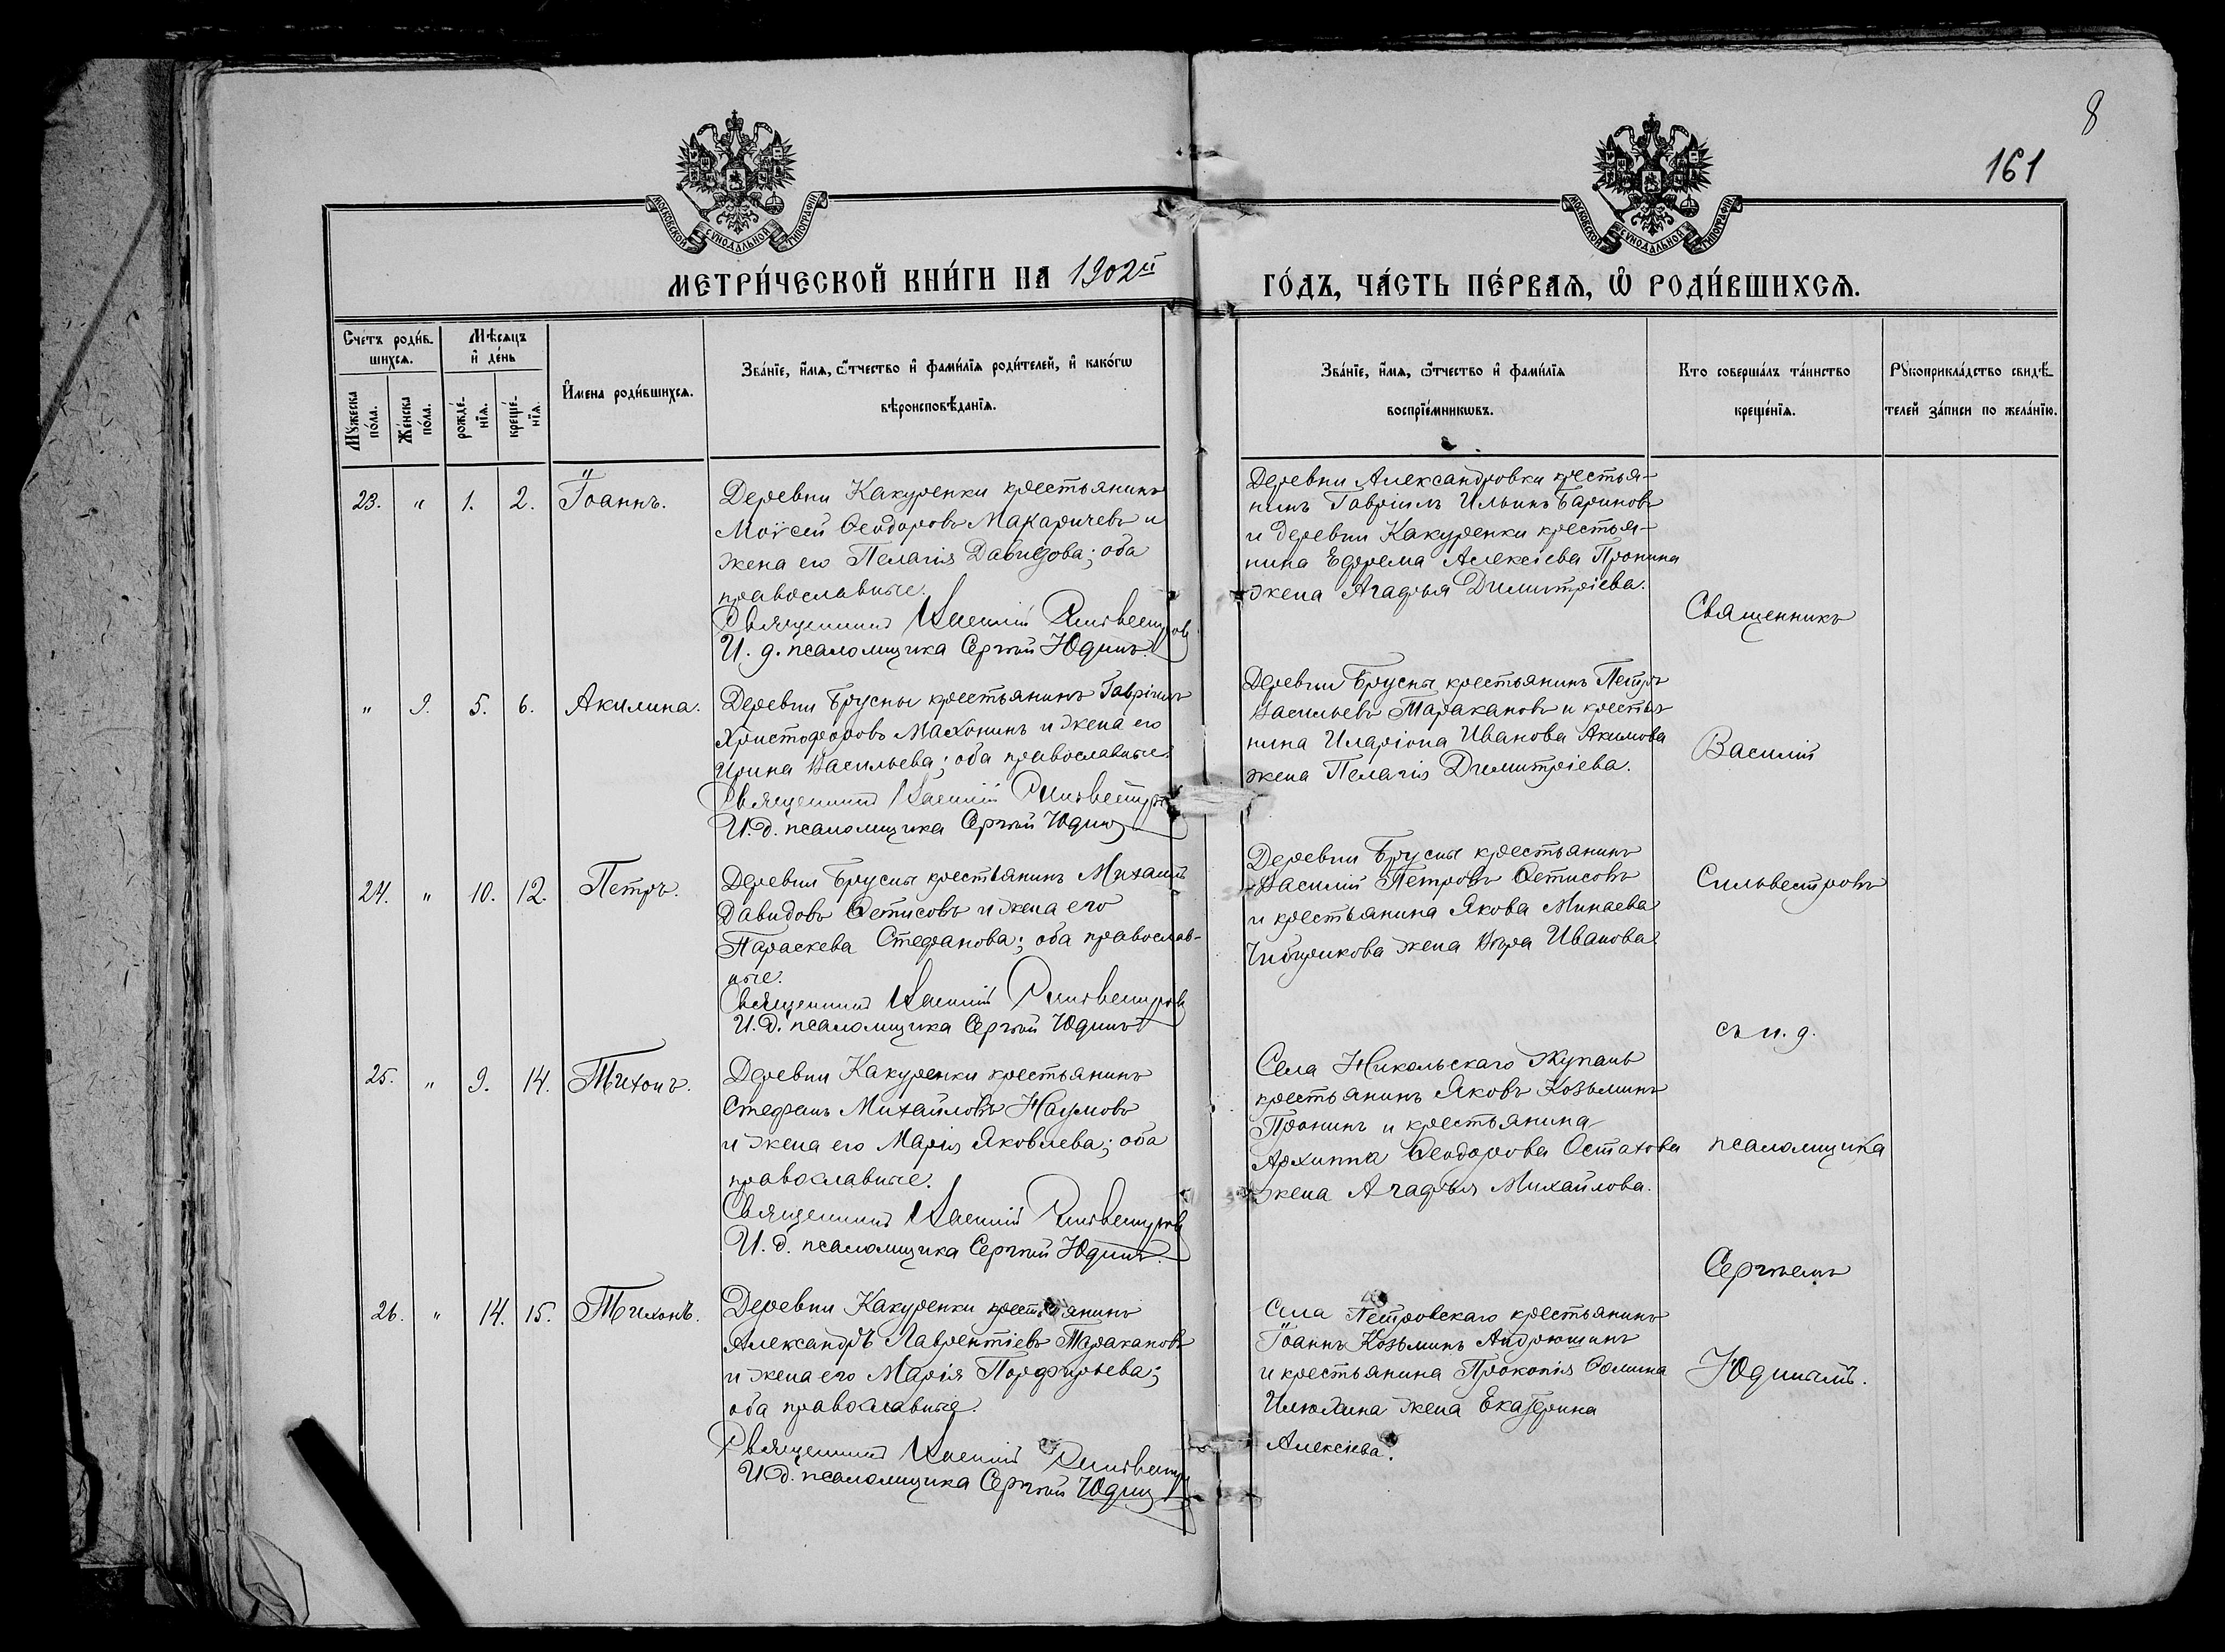 8
161
МОСКОВСКОЙ СѴНОДАЛЬНОЙ ТИПОГРАФІИ
МОСКОВСКОЙ СѴНОДАЛЬНОЙ ТИПОГРАФІИ
МЕТРИ́ЧЕСКОЙ КНИ́ГИ НА 1902й ГО́ДЪ, ЧА́СТЬ ПЕ́РВАѦ, Ѡ҆ РОДИ́ВШИХСѦ.
Счетъ роди́вшихсѧ.
Мѣсяцъ и҆ де́нь
Мꙋжеска по́ла.
Же́нска по́ла.
рожде́нїѧ.
креще́нїѧ.
И҆мена роди́вшихсѧ.
Зва́нїе, и҆́мѧ, ѻ҆́тчество и҆ фами́лїѧ роди́телей, и҆ како́гѡ
вѣроисповѣ́данїѧ.
Зва́нїе, и҆́мѧ, ѻ҆́тчество и҆ фами́лїѧ
воспрїе́мникѡвъ.
Кто соверша́лъ та́инство
креще́нїѧ.
Рꙋкоприкла́дство свидѣ́-
телей за́писи по жела́нїю.
23. " 1. 2. Іоаннъ.
Деревни Какуренки крестьянинъ
Моѵсей Ѳеодоровъ Макаричевъ и
жена его Пелагія Давидова; оба
православные.
Священникъ Василій Сильвестровъ
И. д. псаломщика Сергѣй Юдинъ.
Деревни Александровки крестья-
нинъ Гавріилъ Ильинъ Бариновъ
и деревни Какуренки крестья-
нина Ефрема Алексіева Пронина
жена Агафья Димитріева.
" 9. 5. 6. Акилина.
Деревни Брусны крестьянинъ Гавріилъ
Христофоровъ Махонинъ и жена его
Ирина Васильева; оба православные.
Священникъ Василій Сильвестровъ
И. д. псаломщика Сергѣй Юдинъ
Деревни Брусны крестьянинъ Петръ
Васильевъ Таракановъ и крестья-
нина Иларіона Иванова Акимова
жена Пелагія Димитріева.
24. " 10. 12. Петръ.
Деревни Брусны крестьянинъ Михаилъ
Давидовъ Ѳетисовъ и жена его
Параскева Стефанова; оба православ-
ные.
Священникъ Василій Сильвестровъ
И. д. псаломщика Сергѣй Юдинъ
Деревни Брусны крестьянинъ
Василій Петровъ Ѳетисовъ
и крестьянина Якова Минаева
жена Вѣра Иванова.
25. " 9. 14. Тихонъ.
Деревни Какуренки крестьянинъ
Стефанъ Михайловъ Наумовъ
и жена его Марія Яковлева; оба
православные.
Священникъ Василій Сильвестровъ
И. д. псаломщика Сергѣй Юдинъ.
Села Никольскаго Жупань
крестьянинъ Яковъ Козьминъ
Пронинъ и крестьянина
Архиппа Ѳеодорова Остахова
жена Агафья Михайлова.
26. " 14. 15. Тихонъ.
Деревни Какуренки крестьянинъ
Александръ Лаврентіевъ Таракановъ
и жена его Марія Порфирьева;
оба православные.
Священникъ Василій Сильвестровъ
И. д. псаломщика Сергѣй Юдинъ
Села Петровскаго крестьянинъ
Іоаннъ Козьминъ Андрюшинъ
и крестьянина Прокопія Ѳомина
Илюхина жена Екатерина
Алексіева.
Священникъ
Василій
Сильвестровъ
съ и. д.
псаломщика
Сергѣемъ
Юдинымъ.